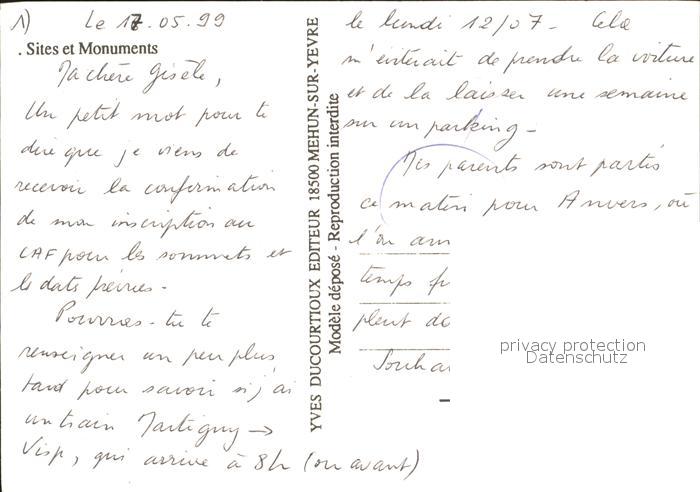 1) Le 17.05.99
. Sites et Monuments
Ma chère Gisèle,
Un petit mot pour te
dire que je viens de
recevoir la confirmation
de mon inscription au
CAF pour les sommets et
les dates prévues -
Pourras-tu te
renseigner un peu plus
tard pour savoir si j'ai
un train Martigny →
Visp, qui arrive à 8h (ou avant)
YVES DUCOURTIOUX EDITEUR 18500 MEHUN-SUR-YEVRE
Modèle déposé - Reproduction interdite
le lundi 12/07 - Cela
m'éviterait de prendre la voiture
et de la laisser une semaine
sur un parking -
Mes parents sont partis
ce matin pour Anvers, où
l'on
temps
pleut
privacy protection
Datenschutz